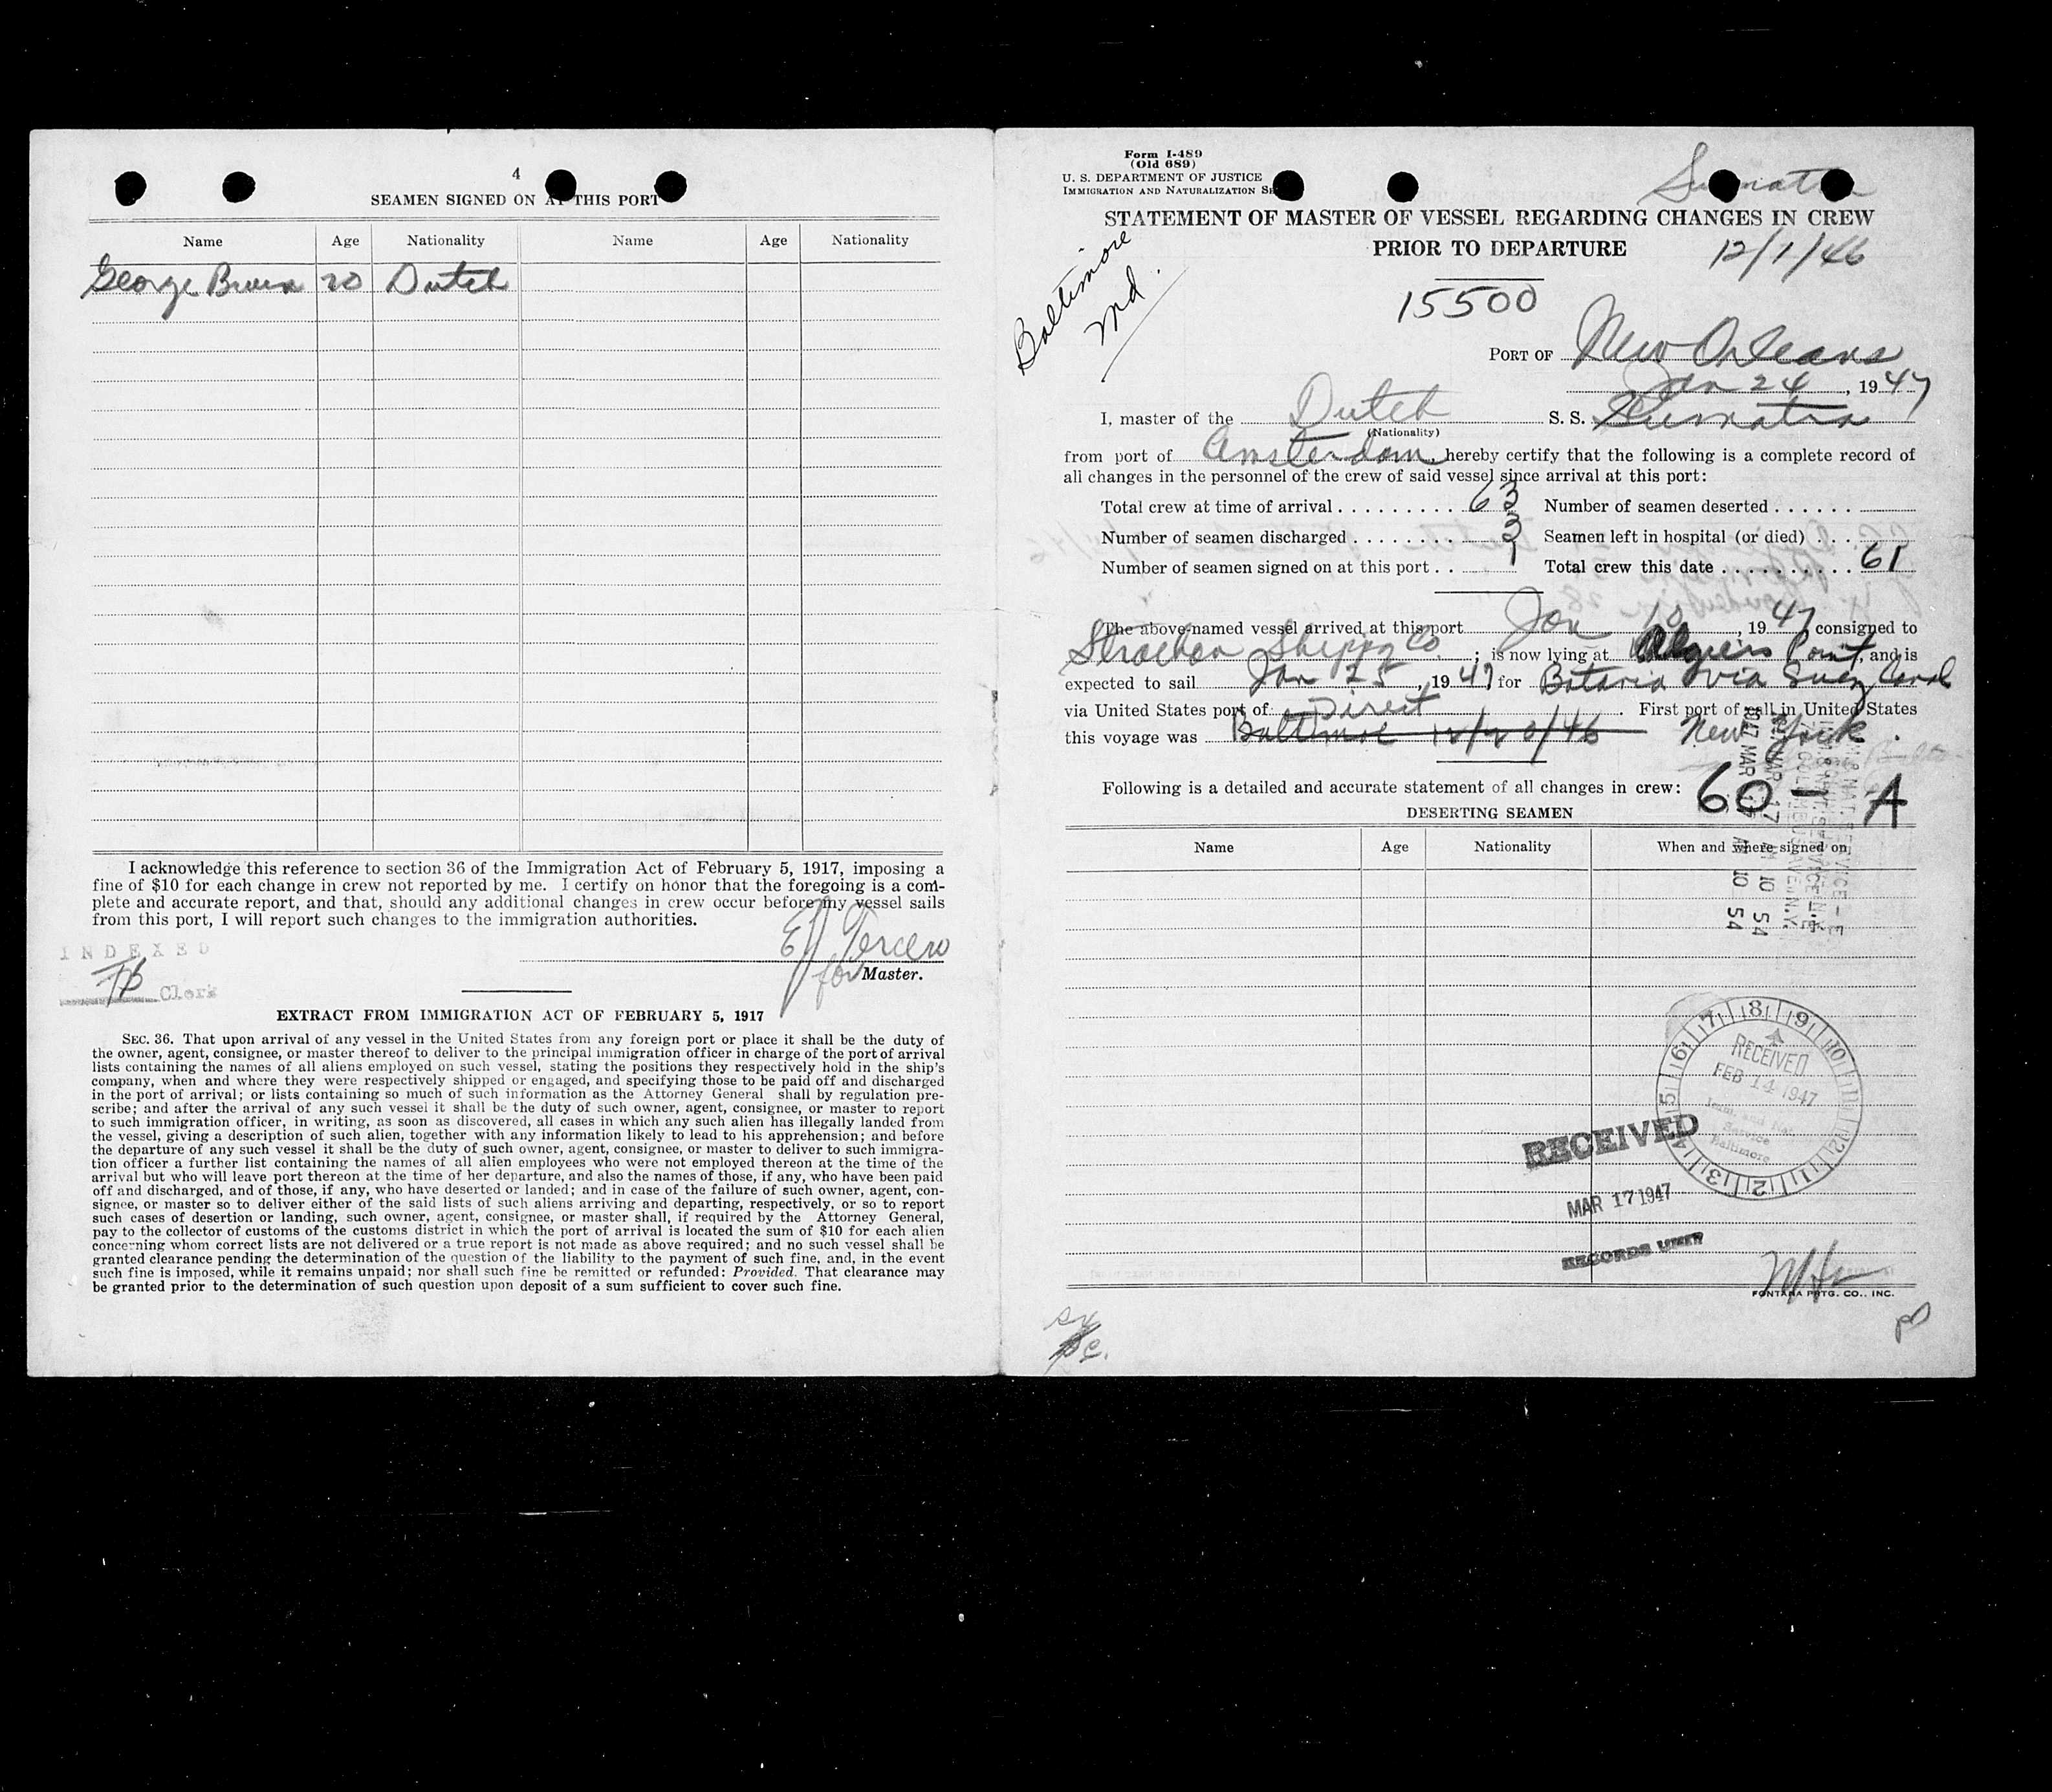 4
SEAMEN SIGNED ON AT THIS PORT
Name Age Nationality Name Age Nationality
George 20 Dutch
I acknowledge this reference to section 36 of the Immigration Act of February 5, 1917, imposing a
fine of $10 for each change in crew not reported by me. I certify on honor that the foregoing is a com-
plete and accurate report, and that, should any additional changes in crew occur before my vessel sails
from this port, I will report such changes to the immigration authorities.
INDEXED
Clerk
for Master.
EXTRACT FROM IMMIGRATION ACT OF FEBRUARY 5, 1917
SEC. 36. That upon arrival of any vessel in the United States from any foreign port or place it shall be the duty of
the owner, agent, consignee, or master thereof to deliver to the principal immigration officer in charge of the port of arrival
lists containing the names of all aliens employed on such vessel, stating the positions they respectively hold in the ship's
company, when and where they were respectively shipped or engaged, and specifying those to be paid off and discharged
in the port of arrival; or lists containing so much of such information as the Attorney General shall by regulation pre-
scribe; and after the arrival of any such vessel it shall be the duty of such owner, agent, consignee, or master to report
to such immigration officer, in writing, as soon as discovered, all cases in which any such alien has illegally landed from
the vessel, giving a description of such alien, together with any information likely to lead to his apprehension; and before
the departure of any such vessel it shall be the duty of such owner, agent, consignee, or master to deliver to such immigra-
tion officer a further list containing the names of all alien employees who were not employed thereon at the time of the
arrival but who will leave port thereon at the time of her departure, and also the names of those, if any, who have been paid
off and discharged, and of those, if any, who have deserted or landed; and in case of the failure of such owner, agent, con-
signee, or master so to deliver either of the said lists of such aliens arriving and departing, respectively, or so to report
such cases of desertion or landing, such owner, agent, consignee, or master shall, if required by the Attorney General,
pay to the collector of customs of the customs district in which the port of arrival is located the sum of $10 for each alien
concerning whom correct lists are not delivered or a true report is not made as above required; and no such vessel shall be
granted clearance pending the determination of the question of the liability to the payment of such fine, and, in the event
such fine is imposed, while it remains unpaid; nor shall such fine be remitted or refunded: Provided, That clearance may
be granted prior to the determination of such question upon deposit of a sum sufficient to cover such fine.
Form I-489
(Old 689)
U. S. DEPARTMENT OF JUSTICE
IMMIGRATION AND NATURALIZATION
Sumatra
STATEMENT OF MASTER OF VESSEL REGARDING CHANGES IN CREW
PRIOR TO DEPARTURE
12/1/46
Baltimore
Md.
15500
PORT OF New Orleans
Jan 24, 1947
I, master of the Dutch S. S. Sumatra
(Nationality)
from port of Amsterdam, hereby certify that the following is a complete record of
all changes in the personnel of the crew of said vessel since arrival at this port:
Total crew at time of arrival 63 Number of seamen deserted
Number of seamen discharged 3 Seamen left in hospital (or died)
Number of seamen signed on at this port 1 Total crew this date 61
The above-named vessel arrived at this port Jan 18, 1947 consigned to
Strachan Shippg Co; is now lying at Algiers Point, and is
expected to sail Jan 25, 1947, for Batavia via Suez Canal
via United States port of Direct. First port of call in United States
this voyage was Baltimore 12/20/46 New York.
Following is a detailed and accurate statement of all changes in crew: 601 A
DESERTING SEAMEN
Name Age Nationality When and where signed on
1947 MAR 17 AM 10 54
RECEIVED
FEB 14 1947
Immi. and Nat.
Service
Baltimore
RECEIVED
MAR 17 1947
RECORDS UNIT
FONTANA PRTG. CO., INC.